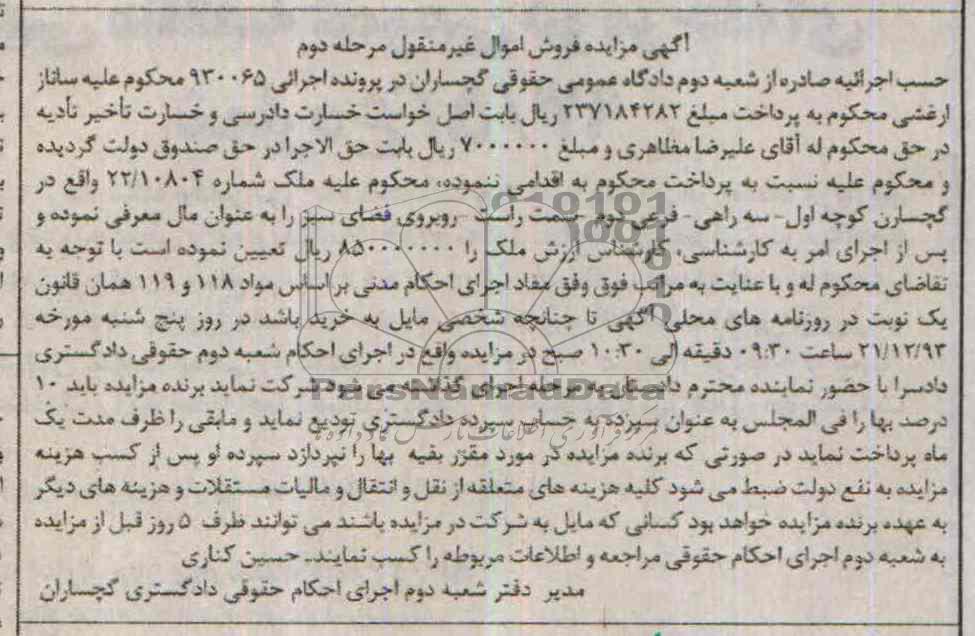 آگهی مزایده فروش اموال غیرمنقول مرحله دوم
حسب اجرائیه صادره از شعبه دوم دادگاه عمومی حقوقی گچساران در پرونده اجرائی ۹۳۰۰۶۵ محکوم علیه ساناز
ارغشی محکوم به پرداخت مبلغ ۲۳۷۱۸۴۲۸۲ ریال بابت اصل خواست خسارت دادرسی و خسارت تأخیر تأدیه
در حق محکوم له آقای علیرضا مظاهری و مبلغ ۷۰۰۰۰۰۰ ریال بابت حق الاجرا در حق صندوق دولت گردیده
و محکوم علیه نسبت به پرداخت محکوم به اقدامی ننموده، محکوم علیه ملک شماره ۲۲/۱۰۸۰۴ واقع در
گچسارن کوچه اول- سه راهی- فرعی دوم -سمت راست -روبروی فضای سبز را به عنوان مال معرفی نموده و
پس از اجرای امر به کارشناسی، کارشناس ارزش ملک را ۸۵۰۰۰۰۰۰۰ ریال تعیین نموده است با توجه به
تقاضای محکوم له و با عنایت به مراتب فوق وفق مفاد اجرای احکام مدنی بر اساس مواد ۱۱۸ و ۱۱۹ همان قانون
یک نوبت در روزنامه های محلی آگهی تا چنانچه شخصی مایل به خرید باشد در روز پنج شنبه مورخه
۲۱/۱۲/۹۳ ساعت ۰۹:۳۰ دقیقه الی ۱۰:۳۰ صبح در مزایده واقع در اجرای احکام شعبه دوم حقوقی دادگستری
دادسرا با حضور نماینده محترم دادستان به مرحله اجرای گذاشته می شود شرکت نماید برنده مزایده باید ۱۰
درصد بها را فی المجلس به عنوان سپرده به حساب سپرده دادگستری تودیع نماید و مابقی را ظرف مدت یک
ماه پرداخت نماید در صورتی که برنده مزایده در مورد مقرر بقیه بها را نپردازد سپرده او پس از کسب هزینه
مزایده به نفع دولت ضبط می شود کلیه هزینه های متعلقه از نقل و انتقال و مالیات مستقلات و هزینه های دیگر
به عهده برنده مزایده خواهد بود کسانی که مایل به شرکت در مزایده باشند می توانند ظرف ۵ روز قبل از مزایده
به شعبه دوم اجرای احکام حقوقی مراجعه و اطلاعات مربوطه را کسب نمایند- حسین کناری
مدیر دفتر شعبه دوم اجرای احکام حقوقی دادگستری گچساران
ParsNamadData